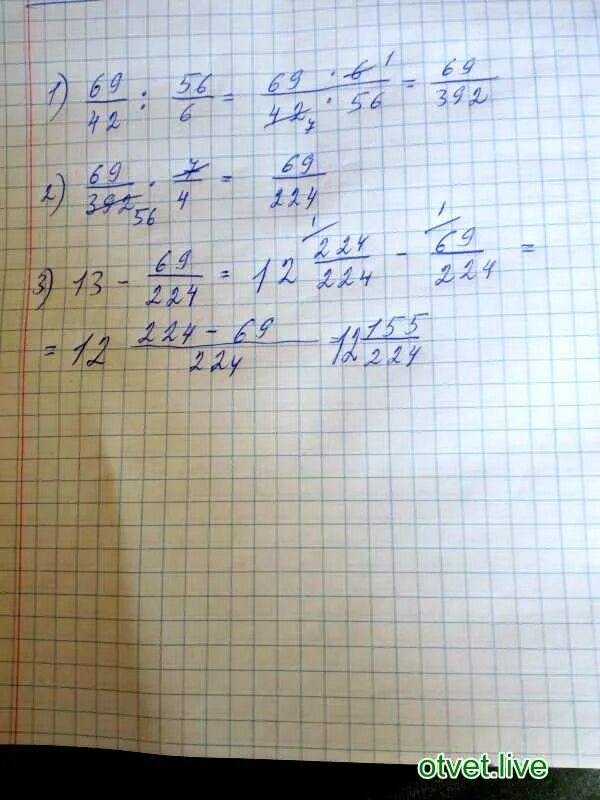 1) 69/42 : 56/6 = 69 · 6 1 / 42 7 · 56 = 69/392
2) 69/392 56 · 7/4 = 69/224
3) 13 - 69/224 = 12 224/224 1/ - 69/224 1/ =
= 12 224 - 69 / 224 = 12 155/224
otvet.live